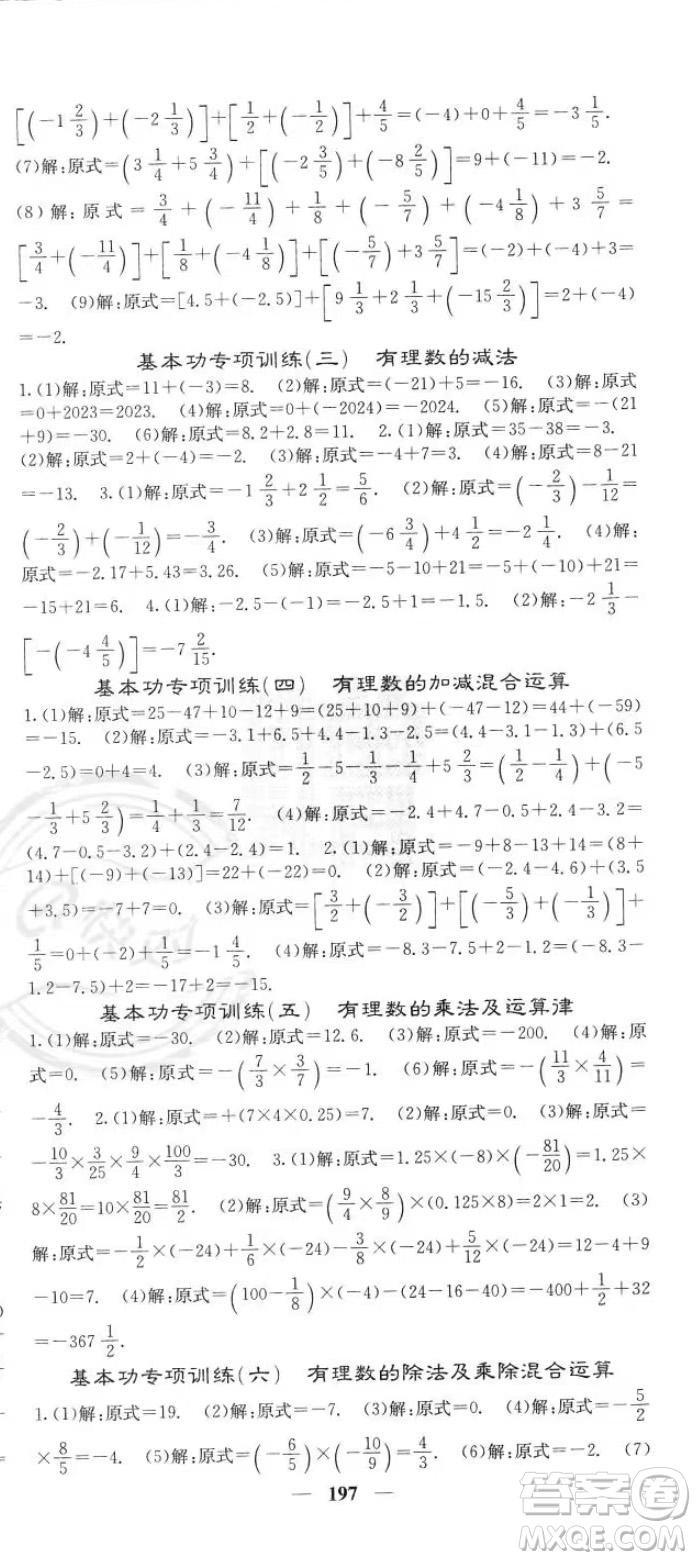 [(-1 2/3)+(-2 1/3)]+[1/2+(-1/2)]+4/5=(-4)+0+4/5=-3 1/5.
(7)解:原式=(3 1/4+5 3/4)+[(-2 3/5)+(-8 2/5)]=9+(-11)=-2.
(8)解:原式=3/4+(-11/4)+1/8+(-5/7)+(-4 1/8)+3 5/7=
[3/4+(-11/4)]+[1/8+(-4 1/8)]+[(-5/7)+3 5/7]=(-2)+(-4)+3=
-3. (9)解:原式=[4.5+(-2.5)]+[9 1/3+2+(-15 2/3)]=2+(-4)
=-2.
基本功专项训练(三) 有理数的减法
1.(1)解:原式=11+(-3)=8. (2)解:原式=(-21)+5=-16. (3)解:原式
=0+2023=2023. (4)解:原式=0+(-2024)=-2024. (5)解:原式=-(21
+9)=-30. (6)解:原式=8.2+2.8=11. 2.(1)解:原式=35-38=-3.
(2)解:原式=2+(-4)=-2. (3)解:原式=-4+7=3. (4)解:原式=8-21
=-13. 3.(1)解:原式=-1 2/3+2 1/2=5/6. (2)解:原式=(-2/3)-1/12=
(-2/3)+(-1/12)=-3/4. (3)解:原式=(-6 3/4)+4 1/2=-2 1/4. (4)解:
原式=-2.17+5.43=3.26. (5)解:原式=-5-10+21=-5+(-10)+21=
-15+21=6. 4.(1)解:-2.5-(-1)=-2.5+1=-1.5. (2)解:-2 1/3-
[-(-4 4/5)]=-7 2/15.
基本功专项训练(四) 有理数的加减混合运算
1.(1)解:原式=25-47+10-12+9=(25+10+9)+(-47-12)=44+(-59)
=-15. (2)解:原式=-3.1+6.5-4.4+4.8+1.3-2.5=(-3.1+4.4-1.3)+(6.5
-2.5)=0+4=4. (3)解:原式=1/2-5-1/3-1/4+5 1/3=(1/2-1/4)+(-5
-1/3+5 1/3)=1/4+1/3=7/12. (4)解:原式=-2.4+4.7-0.5+2.4-3.2=
(4.7-0.5-3.2)+(2.4-2.4)=1. 2.(1)解:原式=-9+8-13+14=(8+
14)+[(-9)+(-13)]=22+(-22)=0. (2)解:原式=(-2.4-4.6)+(3.5
+3.5)=-7+7=0. (3)解:原式=[3/2+(-3/2)]+[(-5/3)+(-1/3)]+
1/5=0+(-2)+1/5=-1 4/5. (4)解:原式=-8.3-7.5-1.2+2=(-8.3-
1.2-7.5)+2=-17+2=-15.
基本功专项训练(五) 有理数的乘法及运算律
1.(1)解:原式=-30. (2)解:原式=12.6. (3)解:原式=-200. (4)解:原
式=0. (5)解:原式=-(7/3×3/7)=-1. (6)解:原式=-(11/3×4/11)=
-4/3. 2.(1)解:原式=+(7×4×0.25)=7. (2)解:原式=
-10/3×3/25×9/4×100/3=-30. 3.(1)解:原式=1.25×(-8)×(-81/20)=1.25×
8×81/20=10×81/20=81/2. (2)解:原式=(9/4×8/9)×(0.125×8)=2×1=2. (3)
解:原式=-1/2×(-24)+1/6×(-24)-3/8×(-24)+5/12×(-24)=12-4+9
-10=7. (4)解:原式=(100-1/8)×(-4)-(24-16-40)=-400+1/2+32
=-367 1/2.
基本功专项训练(六) 有理数的除法及乘除混合运算
1.(1)解:原式=19. (2)解:原式=-7. (3)解:原式=2. (4)解:原式=-5/2
×8/5=-4. (5)解:原式=(-6/5)×(-10/9)=4/3. (6)解:原式=-2. (7)
— 197 —
答案卷
MXQE.COM